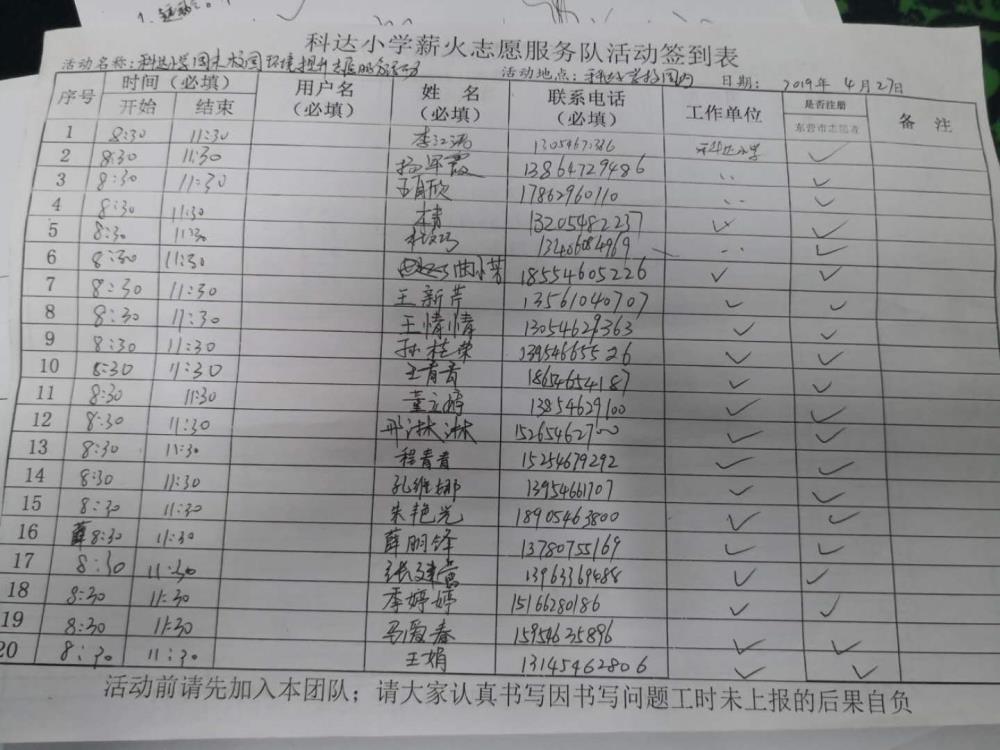 科达小学薪火志愿服务队活动签到表
活动名称：科达小学周末校园环境提升志愿服务活动 活动地点：科达小学校园内 日期：2019年4月27日
序号 时间（必填） 用户名（必填） 姓名（必填） 联系电话（必填） 工作单位 是否注册东营市志愿者 备注
开始 结束
1 8:30 11:30 科达小学 ✓
2 8:30 11:30 杨军霞 13864729486 ✓
3 8:30 11:30 17862960110 ✓
4 8:30 11:30 13205482237 ✓ ✓
5 8:30 11:30 13406084969 ✓
6 8:30 11:30 曲小芳 18554605226 ✓ ✓
7 8:30 11:30 王新芹 13561040707 ✓ ✓
8 8:30 11:30 王情情 13054629363 ✓ ✓
9 8:30 11:30 孙桂荣 13954665526 ✓ ✓
10 8:30 11:30 王青青 18654654187 ✓ ✓
11 8:30 11:30 董立婷 13854629100 ✓ ✓
12 8:30 11:30 邢淋淋 15265462700 ✓ ✓
13 8:30 11:30 程青青 15254679292 ✓ ✓
14 8:30 11:30 孔维娜 13954661707 ✓ ✓
15 8:30 11:30 朱艳光 18905463800 ✓ ✓
16 8:30 11:30 薛丽锋 13780755169 ✓ ✓
17 8:30 11:30 张建 13963369488 ✓ ✓
18 8:30 11:30 李婷婷 15166280186 ✓ ✓
19 8:30 11:30 马爱春 15954635896 ✓ ✓
20 8:30 11:30 王娟 13145462806 ✓ ✓
活动前请先加入本团队；请大家认真书写因书写问题工时未上报的后果自负